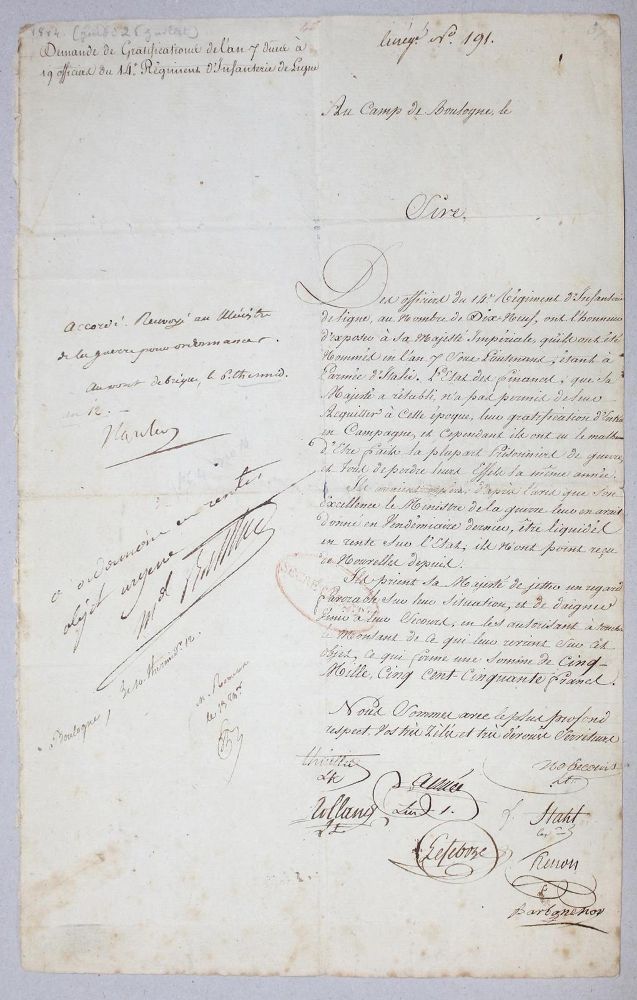 1804
Demande de Gratifications de l'an 7 dues à
19 officiers du 14e Régiment d'Infanterie de Ligne
No. 191.
Au Camp de Boulogne, le
Sire,
Des officiers du 14e Régiment d'Infanterie
de ligne, au Nombre de Dix-Neuf, ont l'honneur
d'exposer à Sa Majesté Impériale, qu'ils ont été
Nommés en l'an 7 Sous Lieutenans, étant à
l'armée d'Italie. L'Etat des finances, que Sa
Majesté a rétabli, n'a pas permis de leur
à Cette époque, leur gratification d'Entrée
en Campagne, et Cependant ils ont eu le malheur
d'Etre faits la plupart Prisonniers de guerre,
et tous de perdre leurs Effets la même année.
Ils d'après l'avis que Son
Excellence le Ministre de la guerre leur en avait
donné en Vendemiaire dernier, être liquidés
en rente Sur l'Etat, ils n'ont point reçu
de Nouvelles depuis.
Ils prient Sa Majesté de jetter un regard
Sur leur Situation, et de daigner
Venir à leur Secours, en les autorisant à toucher
le Montant de Ce qui leur revient Sur cet
objet, Ce qui forme une Somme de Cinq-
Mille, Cinq Cent Cinquante francs.
Nous Sommes avec le plus profond
respect Vos très Zélés et très dévoués Serviteurs
Accordé. Renvoyé au Ministre
de la guerre pour ordonnancer.
Au de brique, le 6 thermid.
an 12.
a ordonnancer en rentes
objet urgent
Boulogne, le 10 therm. an 12.
Rolland
Lefebvre
Staht